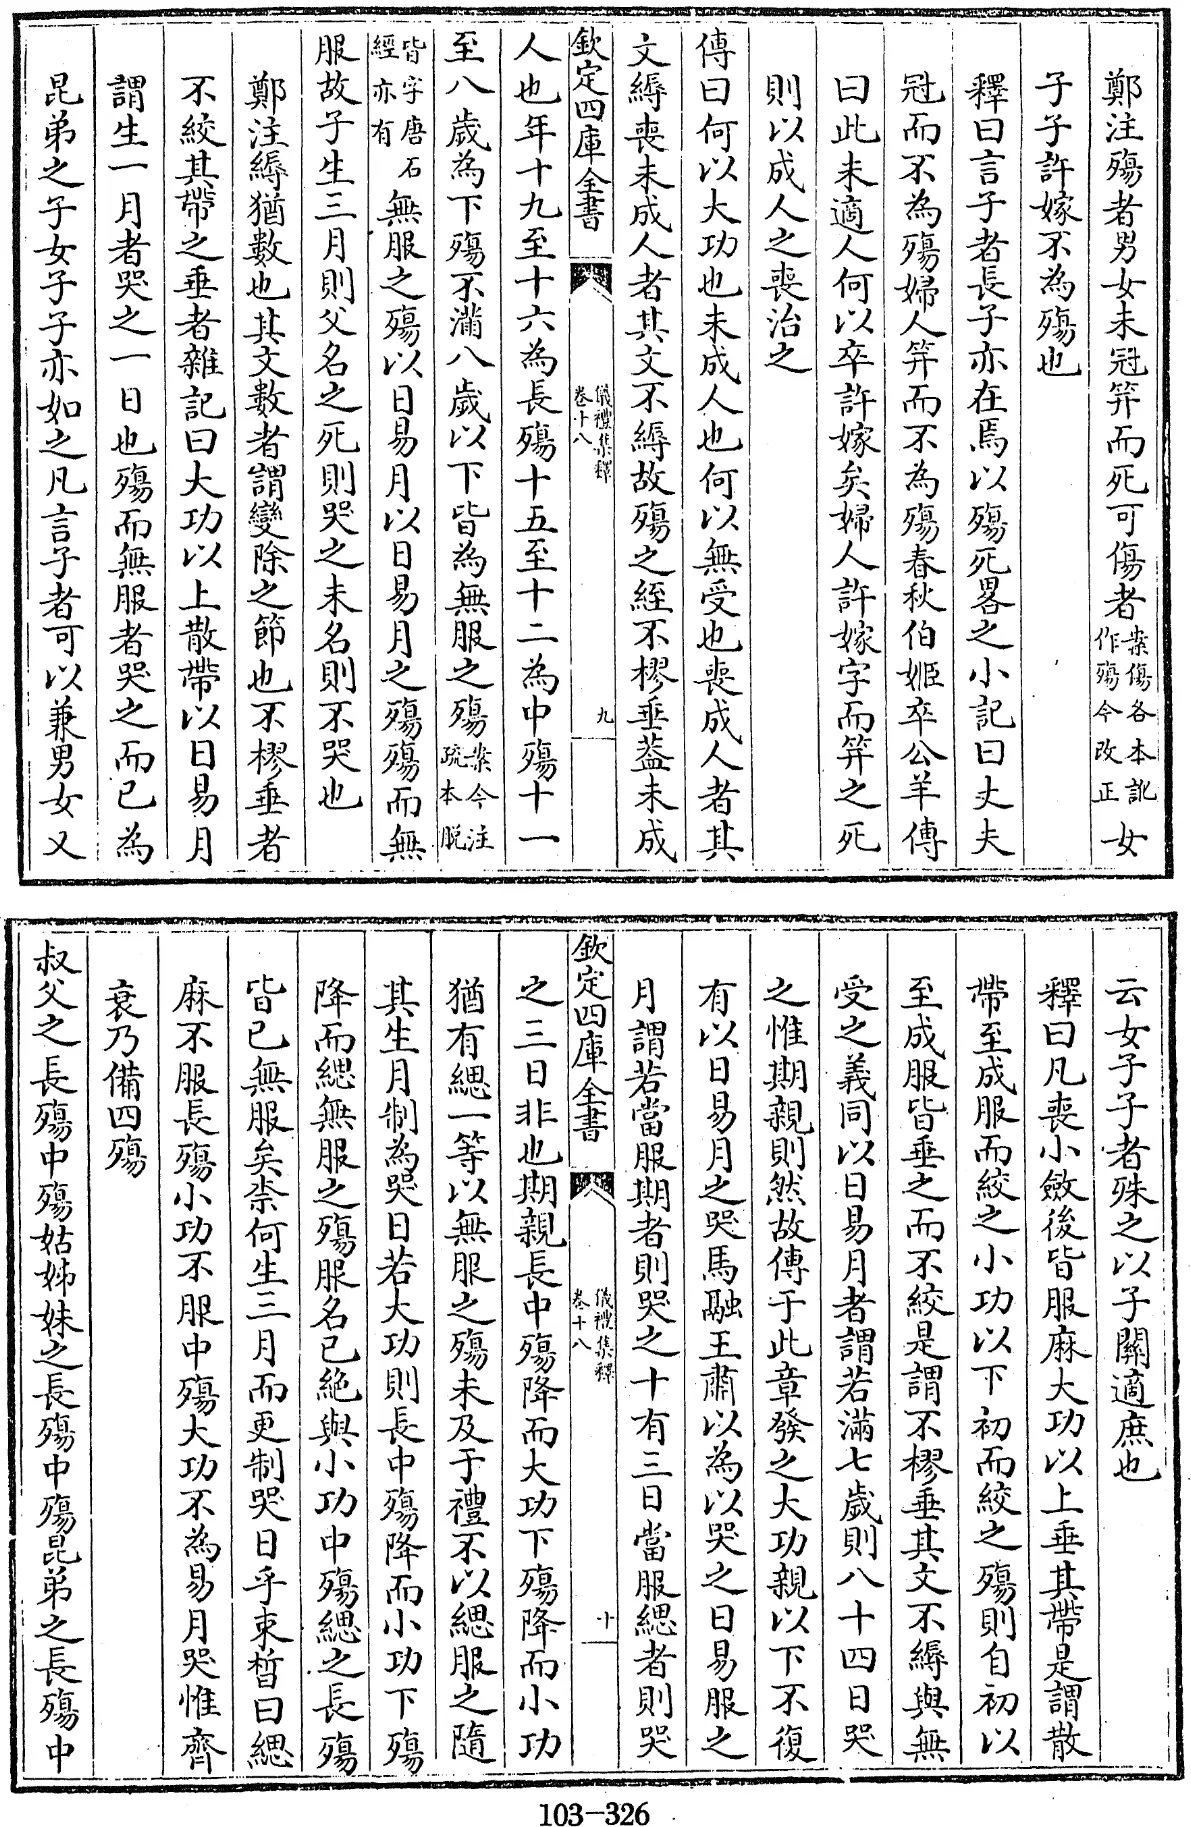 鄭注殤者男女未冠笄而死可傷者案傷各本訛作殤今改正女
子子許嫁不為殤也
釋曰言子者長子亦在焉以殤死畧之小記曰丈夫
冠而不為殤婦人笄而不為殤春秋伯姬卒公羊傳
曰此未適人何以卒許嫁矣婦人許嫁字而笄之死
則以成人之喪治之
傳曰何以大功也未成人也何以無受也喪成人者其
文縟喪未成人者其文不縟故殤之絰不樛垂葢未成
欽定四庫全書
儀禮集釋
卷十八
九
人也年十九至十六為長殤十五至十二為中殤十一
至八歲為下殤不滿八歲以下皆為無服之殤案今注疏本脫
皆字唐石經亦有無服之殤以日易月以日易月之殤殤而無
服故子生三月則父名之死則哭之未名則不哭也
鄭注縟猶數也其文數者謂變除之節也不樛垂者
不絞其帶之垂者雜記曰大功以上散帶以日易月
謂生一月者哭之一日也殤而無服者哭之而已為
昆弟之子女子子亦如之凡言子者可以兼男女又
云女子子者殊之以子關適庶也
釋曰凡喪小斂後皆服麻大功以上垂其帶是謂散
帶至成服而絞之小功以下初而絞之殤則自初以
至成服皆垂之而不絞是謂不樛垂其文不縟與無
受之義同以日易月者謂若滿七歲則八十四日哭
之惟期親則然故傳于此章發之大功親以下不復
有以日易月之哭馬融王肅以為以哭之日易服之
月謂若當服期者則哭之十有三日當服緦者則哭
欽定四庫全書
儀禮集釋
卷十八
十
之三日非也期親長中殤降而大功下殤降而小功
猶有緦一等以無服之殤未及于禮不以緦服之隨
其生月制為哭日若大功則長中殤降而小功下殤
降而緦無服之殤服名已絶與小功中殤緦之長殤
皆已無服矣柰何生三月而更制哭日乎束晳曰緦
麻不服長殤小功不服中殤大功不為易月哭惟齊
衰乃備四殤
叔父之長殤中殤姑姊妹之長殤中殤昆弟之長殤中
103-326